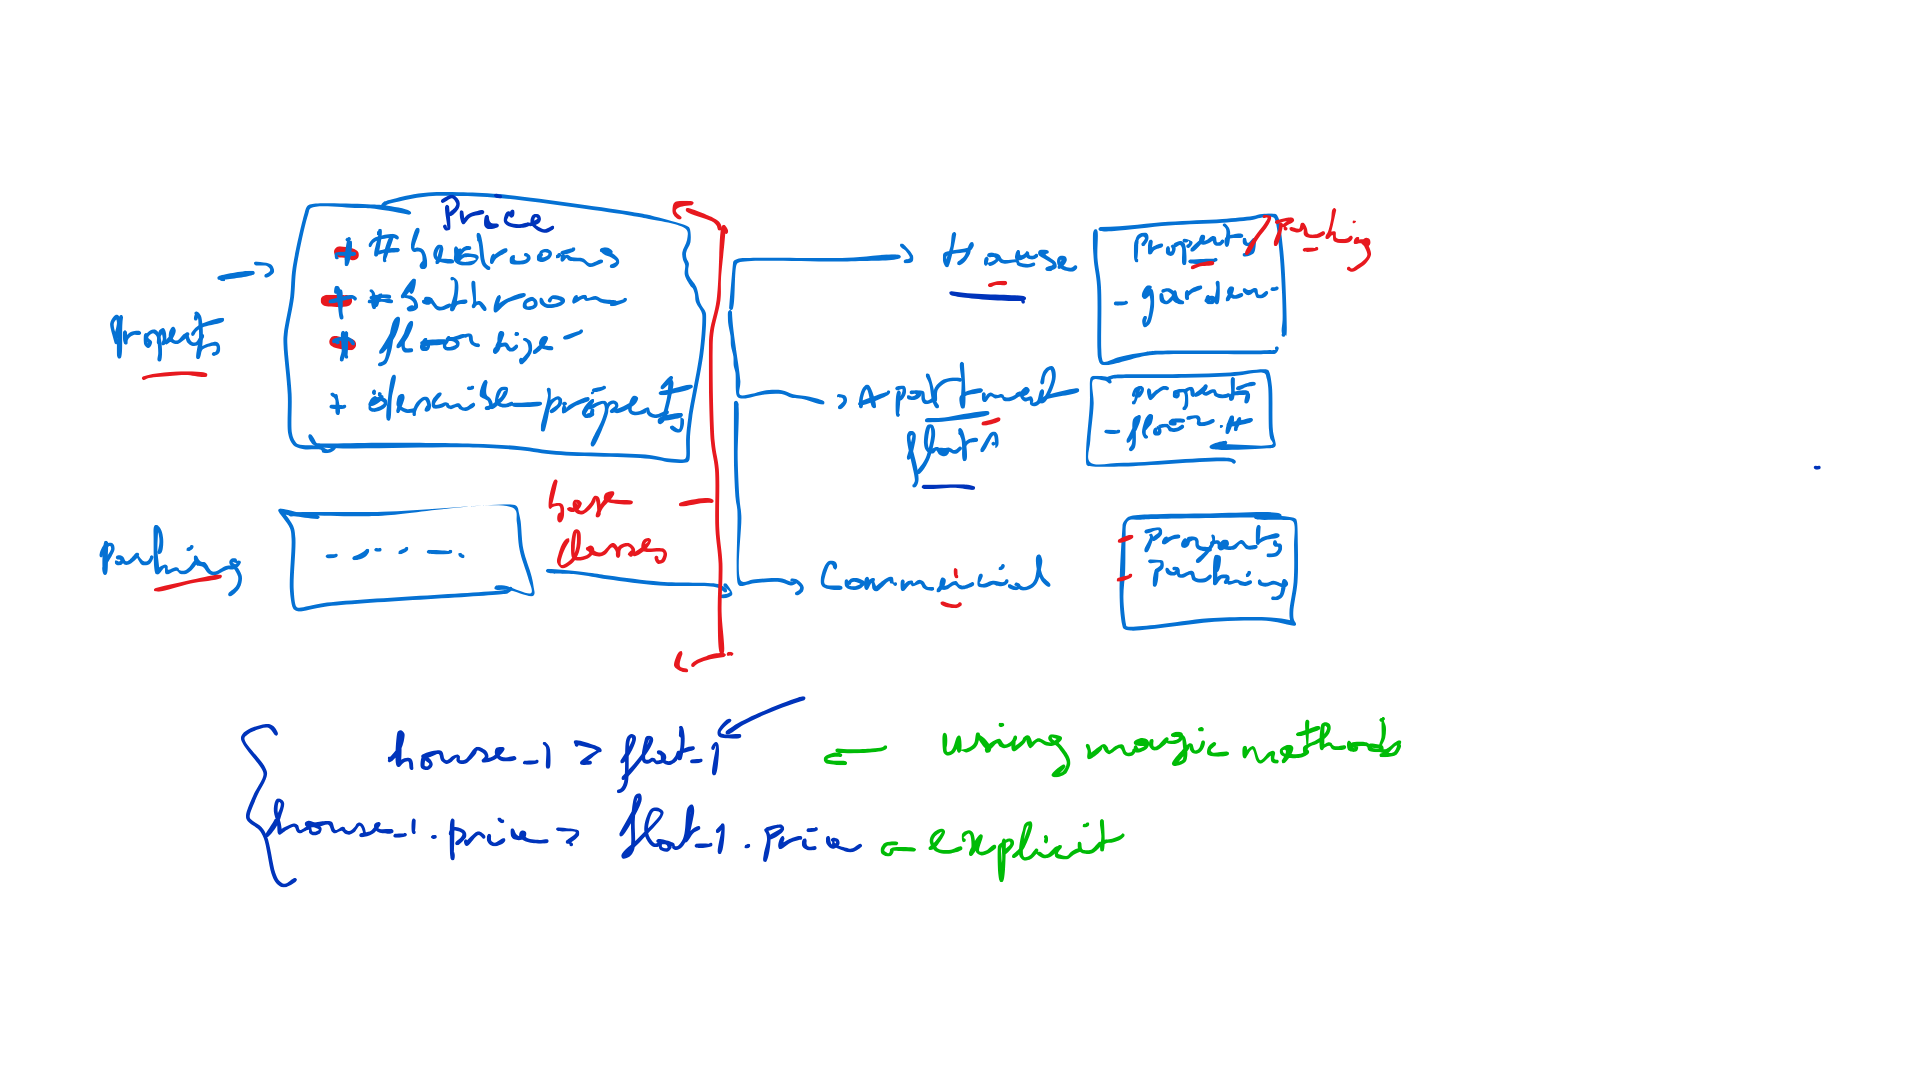 Price
+ # bedrooms
+ # bathroom
+ floor size
+ describe-property
Property
Parking
- - - - -
base
classes
House
Property / Parking
- garden
Apartment
flats
property
- floor #
Commercial
- Property
- Parking
house_1 > flat_1 ← using magic methods
house_1.price > flat_1.price ← explicit